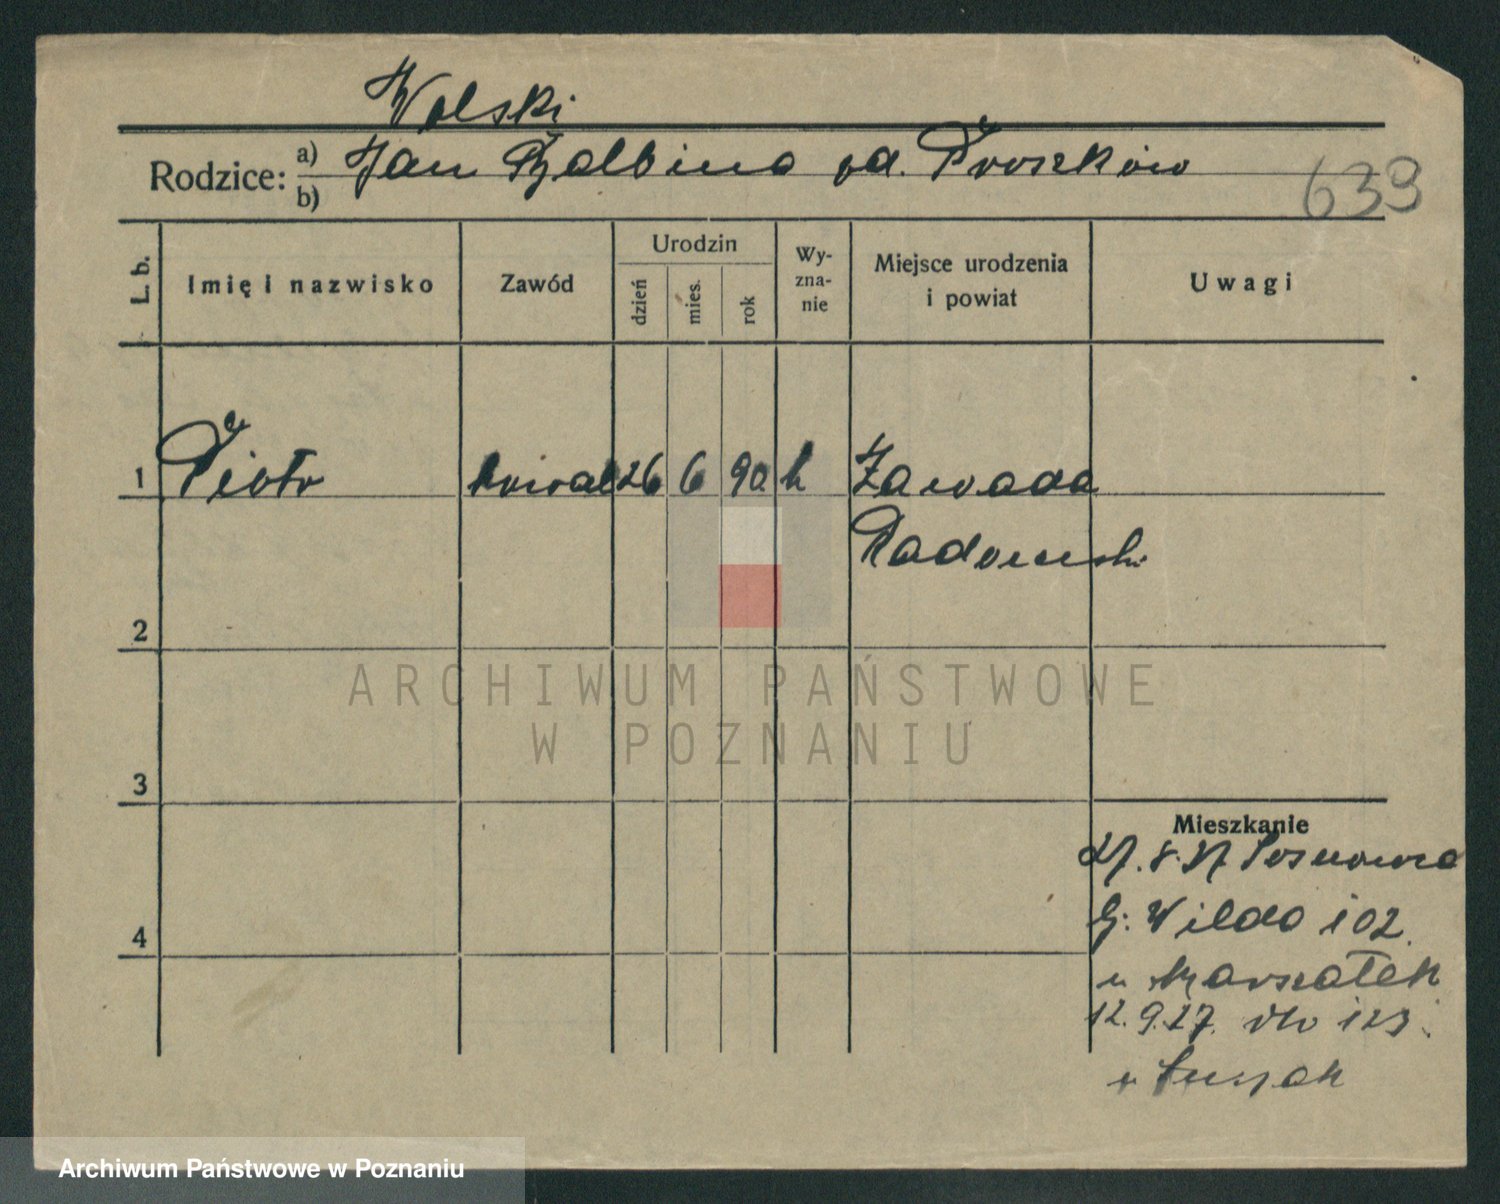 Wolski
Rodzice: a) Jan Balbina od. Proszków
b)
639
L. b.
Imię i nazwisko
Zawód
Urodzin
dzień
mies.
rok
Wy-
zna-
nie
Miejsce urodzenia
i powiat
Uwagi
1 Piotr 26 6 90 k Zawada
Radomski
2
ARCHIWUM PAŃSTWOWE
W POZNANIU
3
Mieszkanie
4
G. Wilda 102
u Marszałek
12.9.27. 123
u
Archiwum Państwowe w Poznaniu